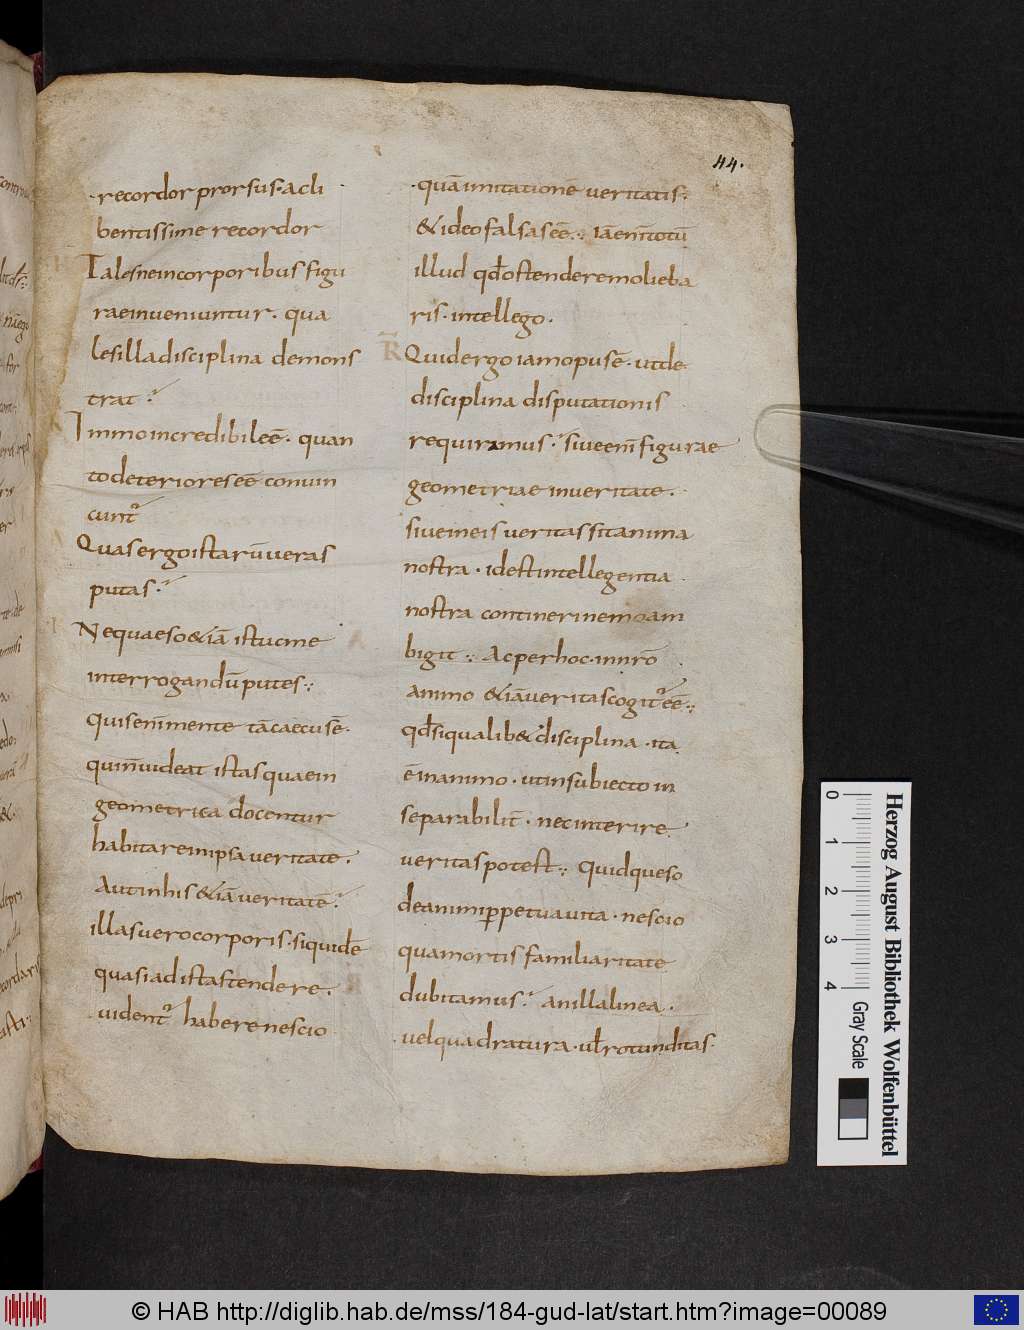 44.
·recordor prorsus·acli
bentissime recordor
Talesneincorporibusfigu
raeinueniuntur. qua
lesilladisciplina demons
trat·
Immoincredibileē· quan
todeterioreseē conuin
cunt̄
Quasergoistarūueras
putas·
Nequaeso&iā istucme
interrogandūputes
quisenīmente tācaecusē·
quinuideat istasquaein
geometrica docentur
habitareinipsaueritate·
Autinhis&iāueritatē
illasuerocorporis·siquidē
quasiadistastendere·
uident̄ haberenescio
·quāimitationē ueritatis
&ideofalsaseē· iāenīmtotū
illud qđostenderemolieba
ris·intellego·
R
Quidergoiamopusē·utde
disciplina disputationis
requiramus· siueenīfigurae
geometriae inueritate·
siueineis ueritassitanima
nostra· idestintellegentia
nostra continerinemoam
bigit· Acperhoc·innr̄o
animo &iāueritascogit̄eē·
qđsiqualib&disciplina·ita
ēinanimo·utinsubiecto in
separabilit̄·necinterire
ueritaspotest· Quidqueso
deanimiꝑpetuauita·nescio
quamortisfamiliaritate
dubitamus· anillalinea·
uelquadratura·ułrotunditas·
Herzog August Bibliothek Wolfenbüttel
0 1 2 3 4
Gray Scale
© HAB http://diglib.hab.de/mss/184-gud-lat/start.htm?image=00089